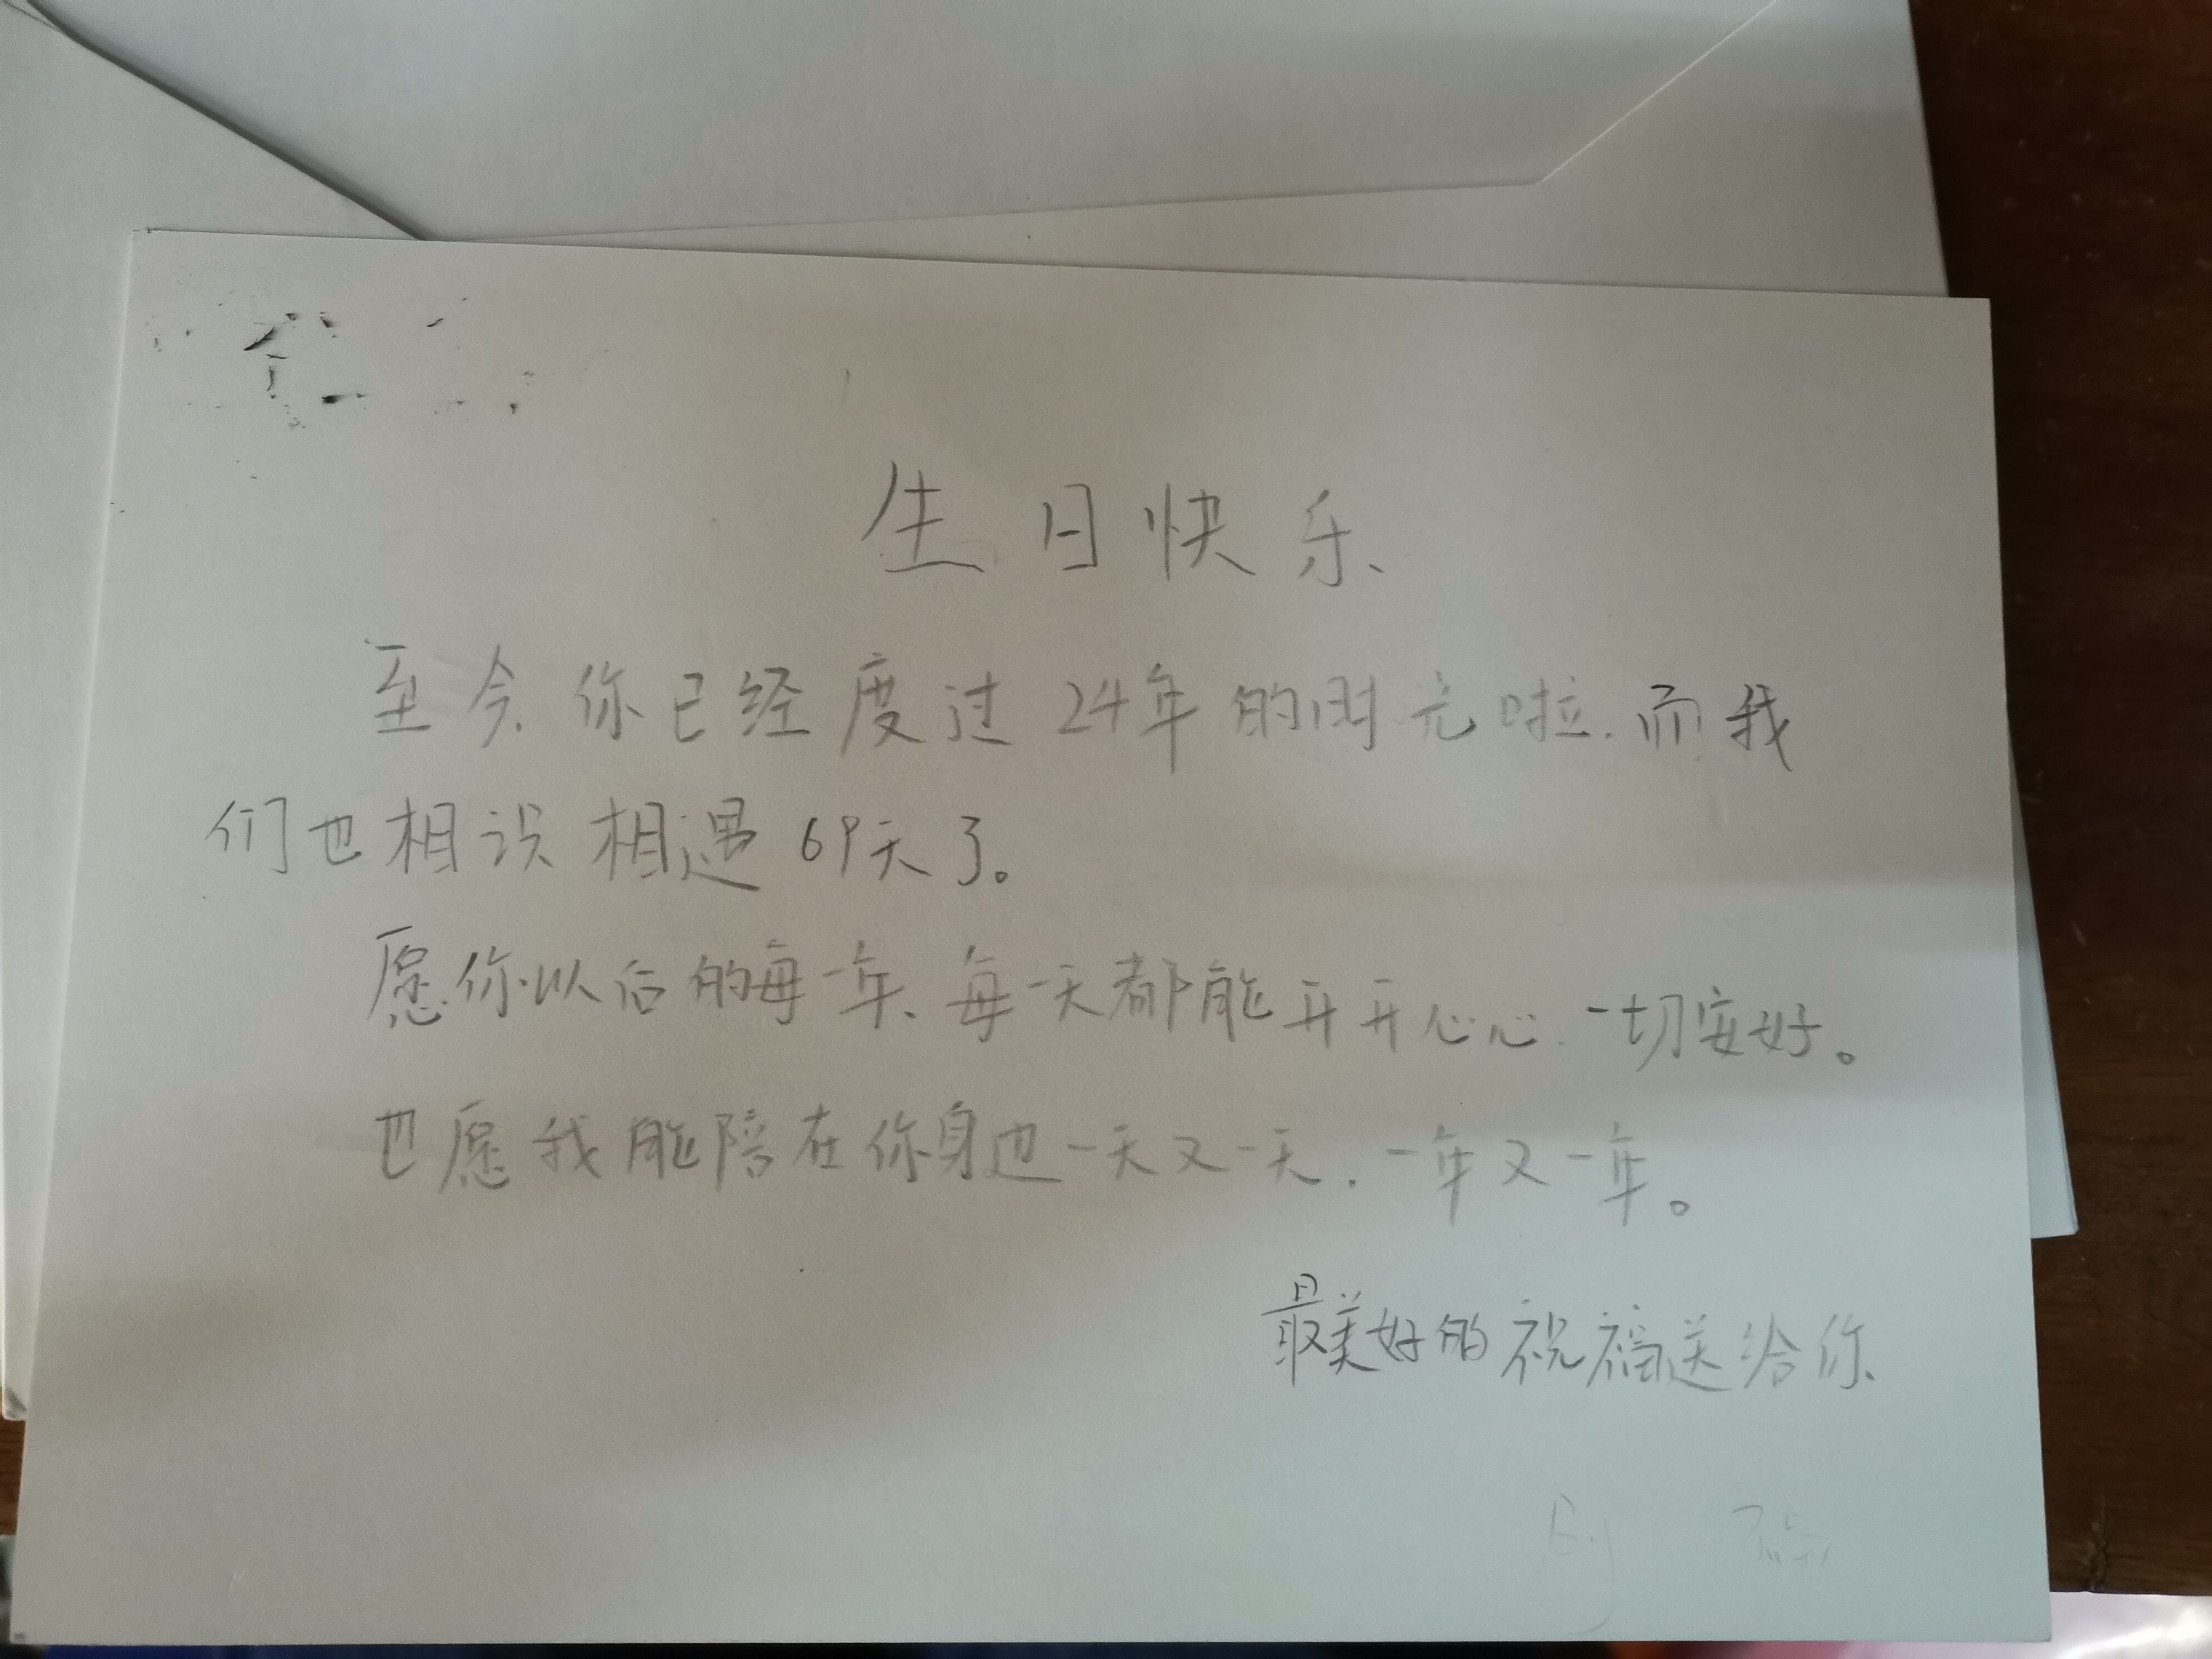 生日快乐
至今,你已经度过24年的时光啦.而我
们也相识相遇69天了。
愿你以后的每一年、每一天都能开开心心.一切安好。
也愿我能陪在你身边一天又一天.一年又一年。
最美好的祝福送给你、
By